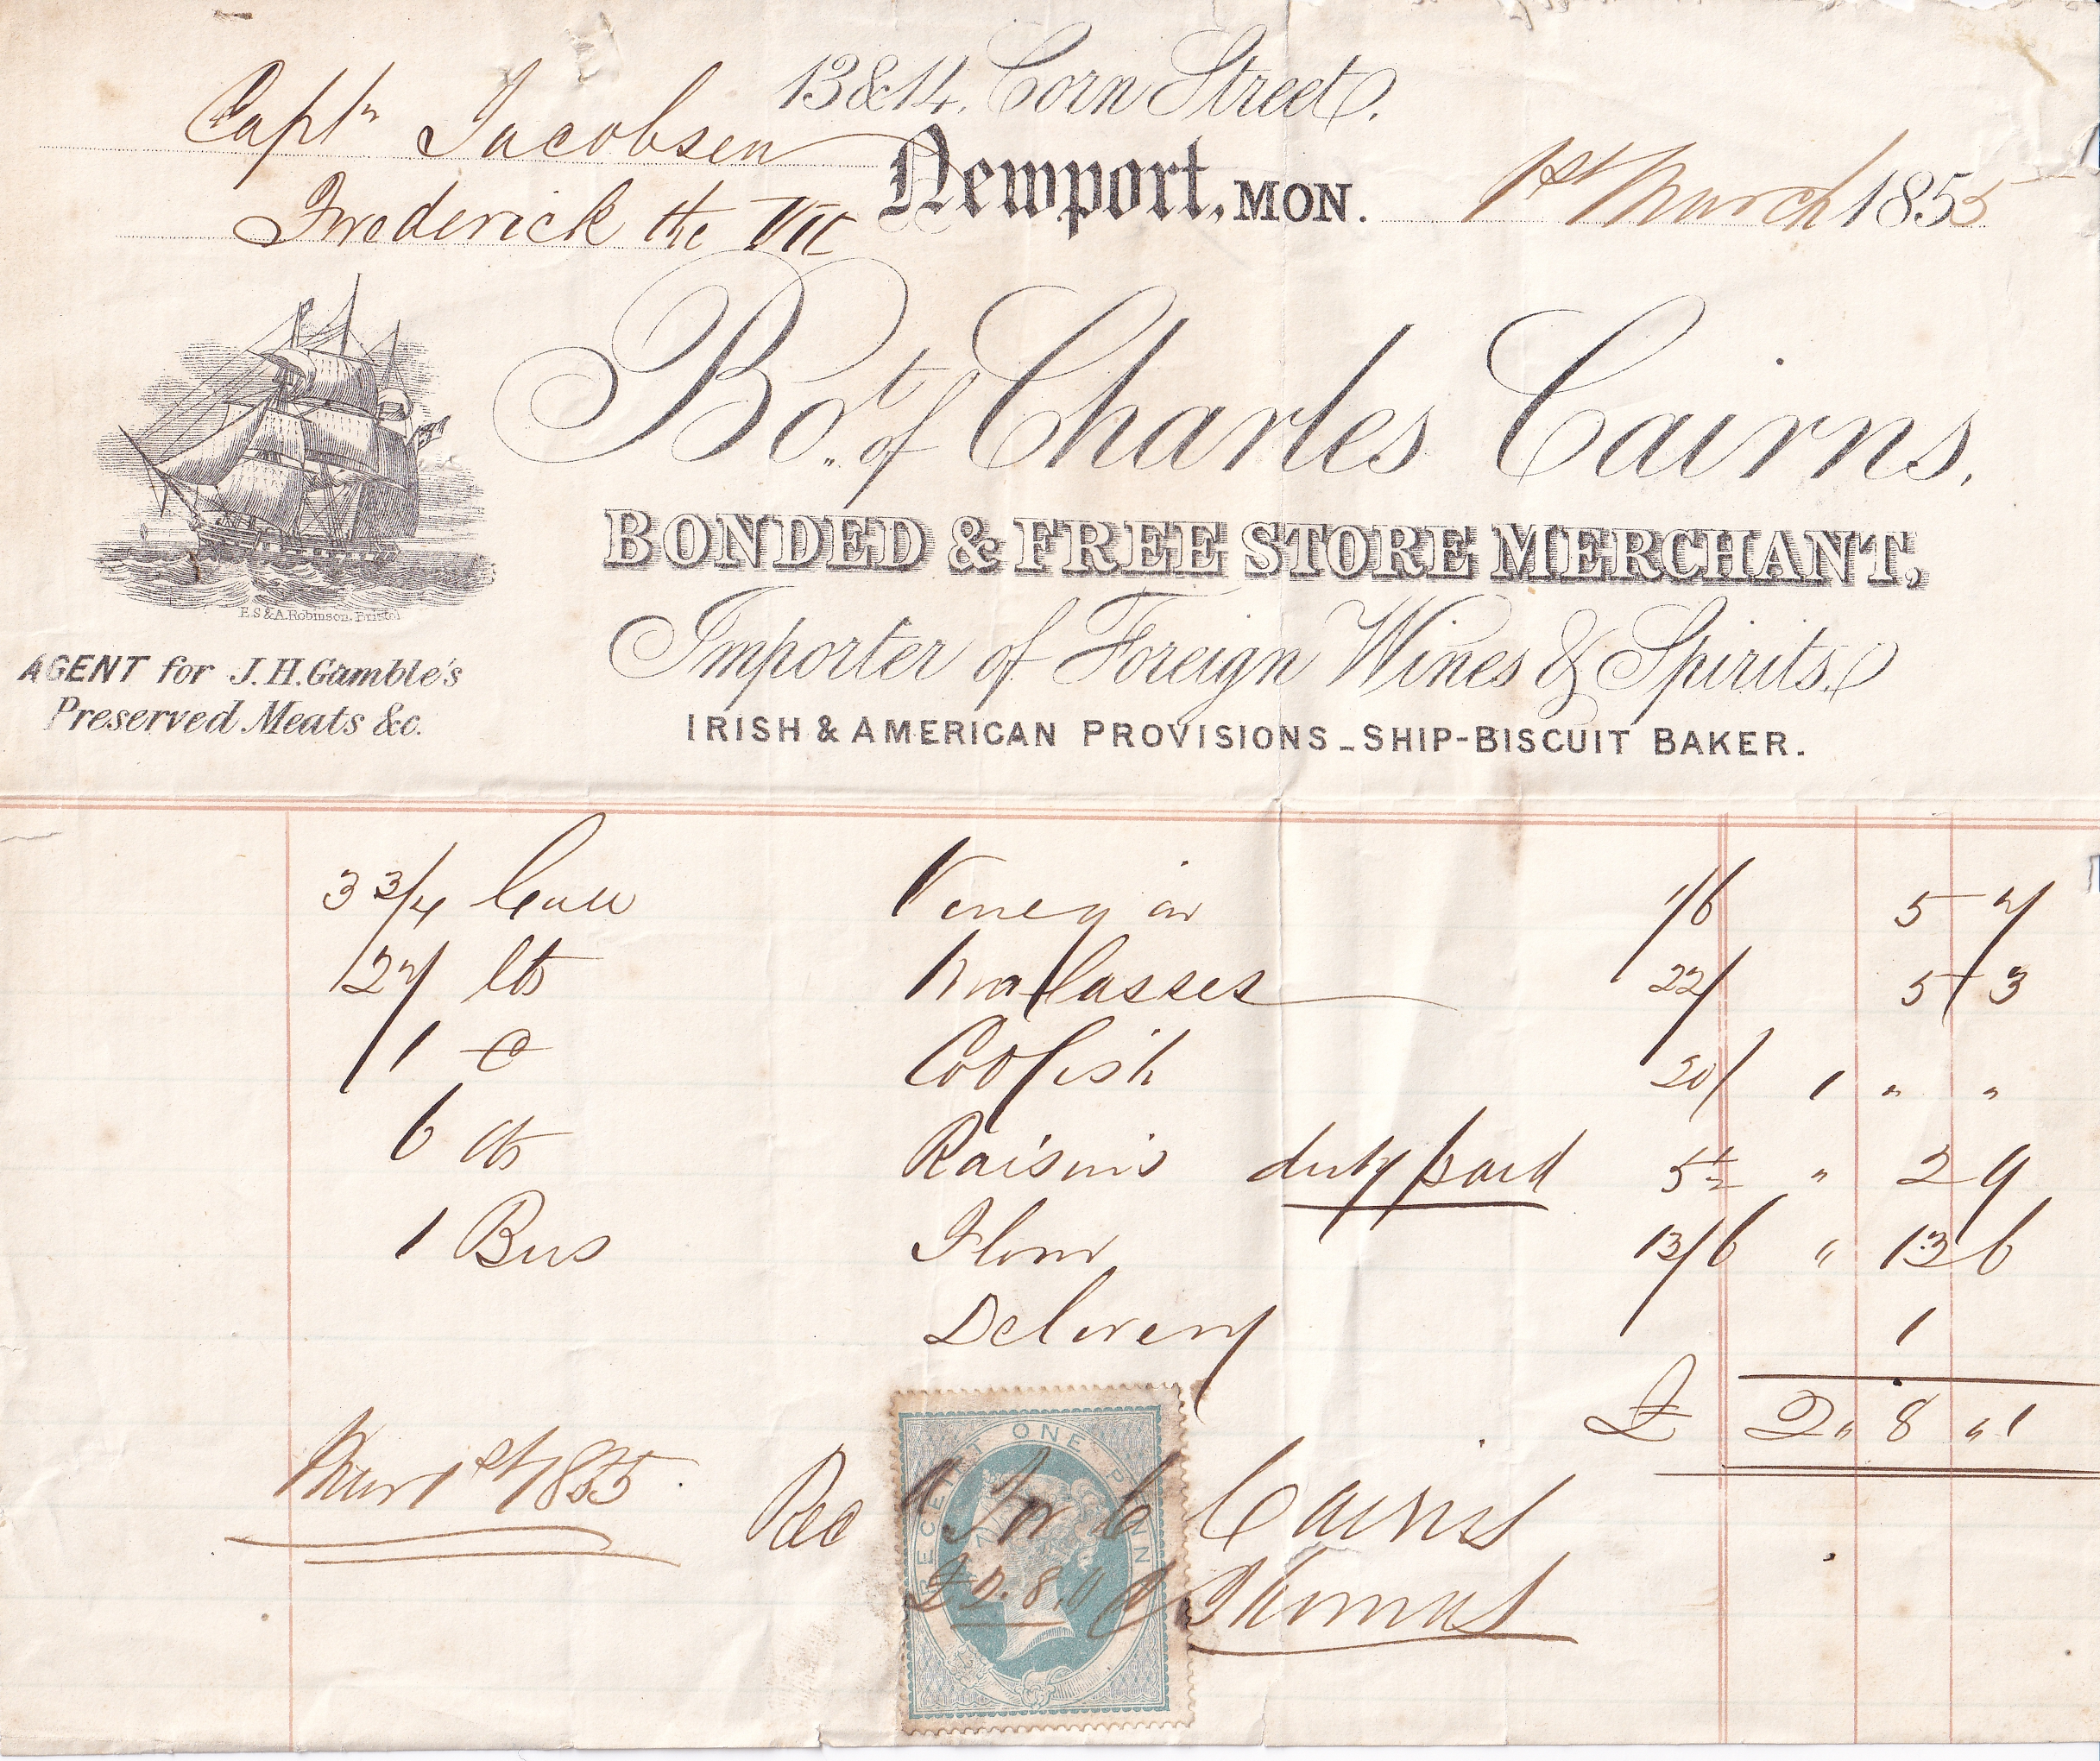 13 & 14, Corn Street.
Captn Jacobsen
Newport, MON. 1st March 1855
Frederick the VII
Bot. of Charles Cairns,
BONDED & FREE STORE MERCHANT,
Importer of Foreign Wines & Spirits.
IRISH & AMERICAN PROVISIONS _ SHIP-BISCUIT BAKER.
E S & A. Robinson, Bristol
AGENT for J. H. Gamble's
Preserved Meats &c.
3 3/4 Vinegar 1/6 5 7
27 lbs Molasses 22/ 5 3
1 C Codfish 20/ 1 " "
6 lbs Raisins duty paid 5 1/2 " 2 9
1 Bus Flour 13/6 " 13 6
Delivery 1
£ 2 " 8 " 1
Mar 1st 1855 Recd For C Cairns
£2.8.1 Thomas
RECEIPT ONE PENNY